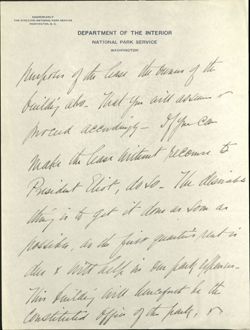 DEPARTMENT OF THE INTERIOR
NATIONAL PARK SERVICE
WASHINGTON
of the lease the owners of the
building also. That you will assume &
proceed accordingly — If you can
make the lease without recourse to
President Eliot, do so. The desirable
thing is to get it done as soon as
possible, as the first quarter's rent is
due & will help in our park expenses.
This building will henceforth be the
Constituted Office of the park, &